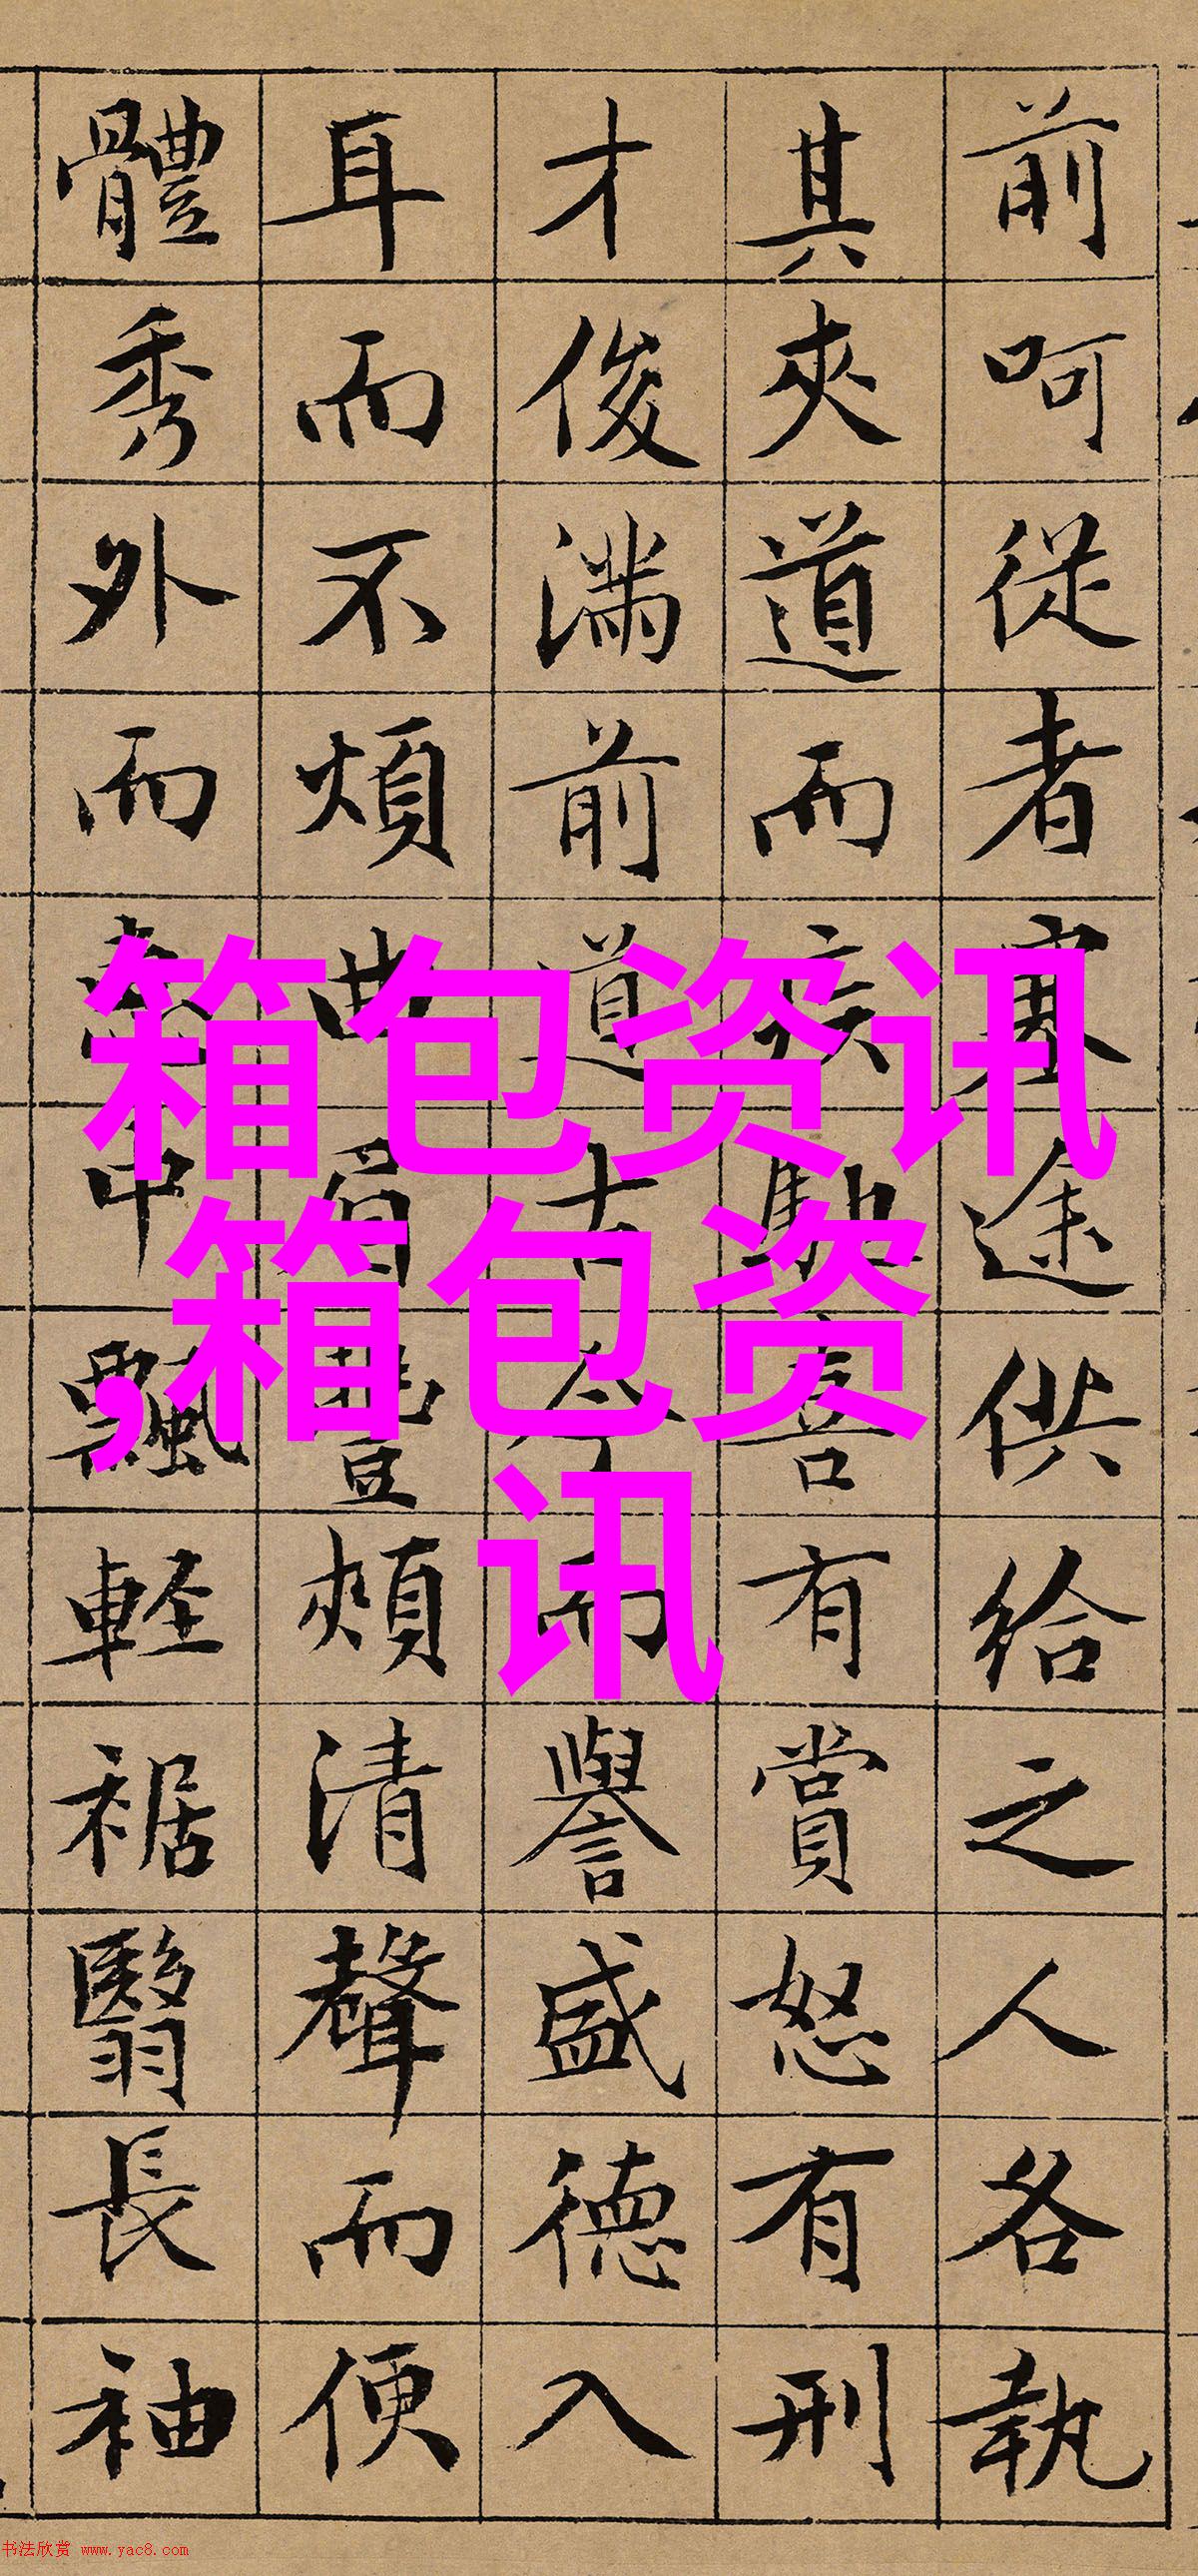 前呵從者塞途供給之人各執
其夾道而疾馳喜有賞怒有刑
才俊滿前道古今而譽盛德入
耳而不煩曲眉豐頰清聲而便
體秀外而惠中飄輕裾翳長袖
箱包资讯
,箱包资
讯
书法欣赏 www.yac8.com